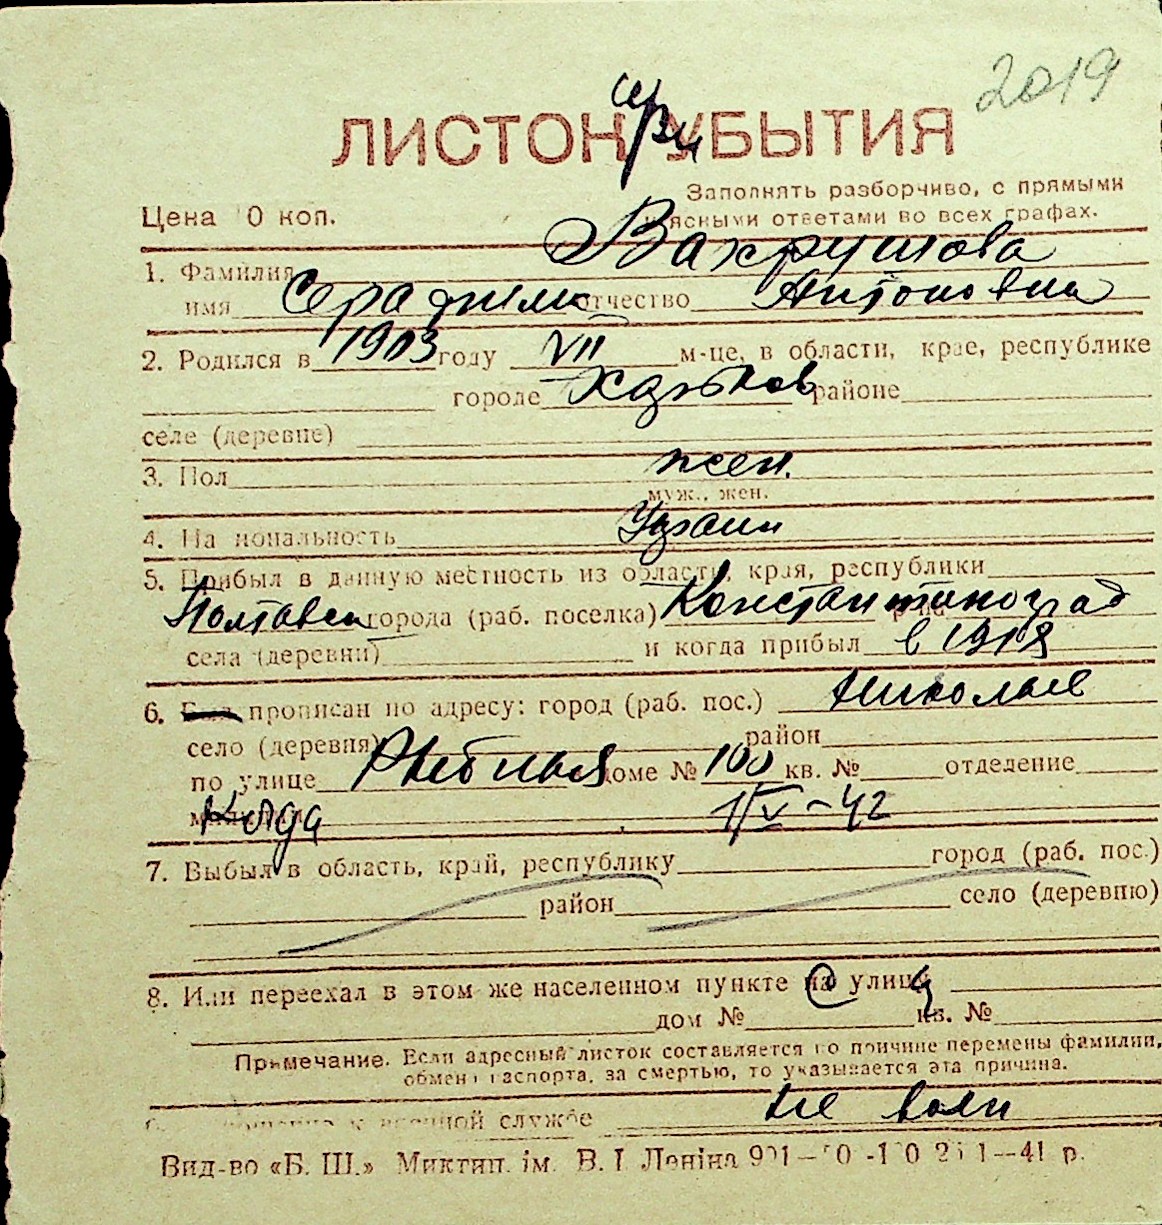 2019
ЛИСТОК УБЫТИЯ
Цена 0 коп.
Заполнять разборчиво, с прямыми
и ясными ответами во всех графах.
1. Фамилия Вахрушова
имя Серафима отчество Антоновна
2. Родился в 1903 году VII м-це, в области, крае, республике
городе Харьков районе
селе (деревне)
3. Пол жен.
муж., жен.
4. Национальность Украин
5. Прибыл в данную местность из области, края, республики
Полтавск города (раб. поселка) Константиноград р-на
села (деревни) и когда прибыл в 1918
6. прописан по адресу: город (раб. пос.) Николаев
село (деревня) район
по улице Рыбная доме № 100 кв. № отделение
Куда 1/V-42
7. Выбыл в область, край, республику город (раб. пос.)
район село (деревню)
8. Или переехал в этом же населенном пункте на улицу
дом № кв. №
Примечание. Если адресный листок составляется по причине перемены фамилии,
обмена паспорта, за смертью, то указывается эта причина.
к военной службе не воен
Вид-во «Б. Ш.» Миктип. ім. В. І. Леніна